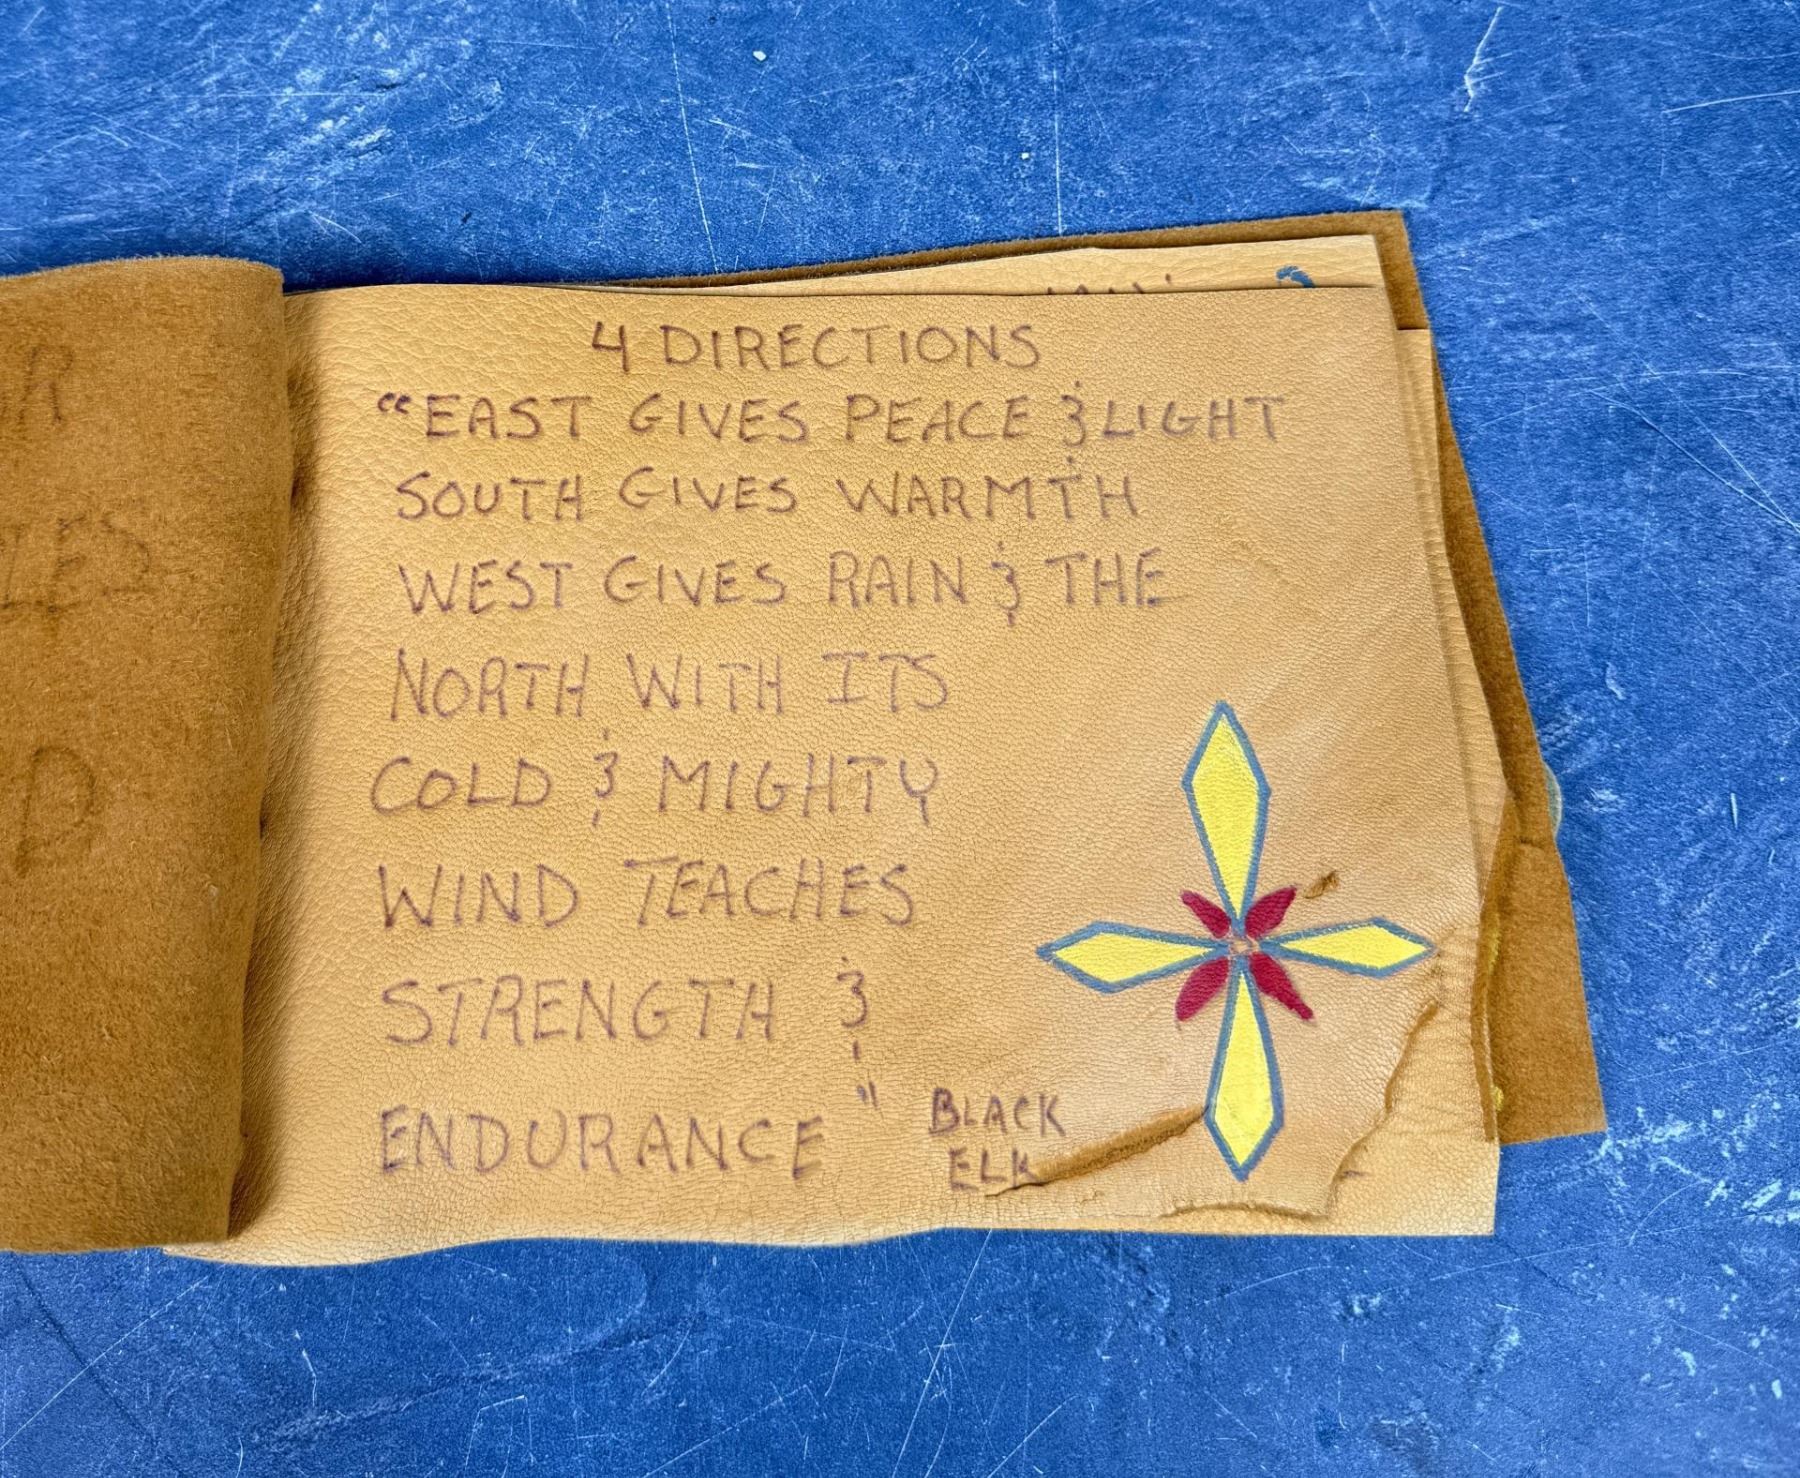 4 DIRECTIONS
"EAST GIVES PEACE & LIGHT
SOUTH GIVES WARMTH
WEST GIVES RAIN & THE
NORTH WITH ITS
COLD & MIGHTY
WIND TEACHES
STRENGTH &
ENDURANCE"
BLACK
ELK